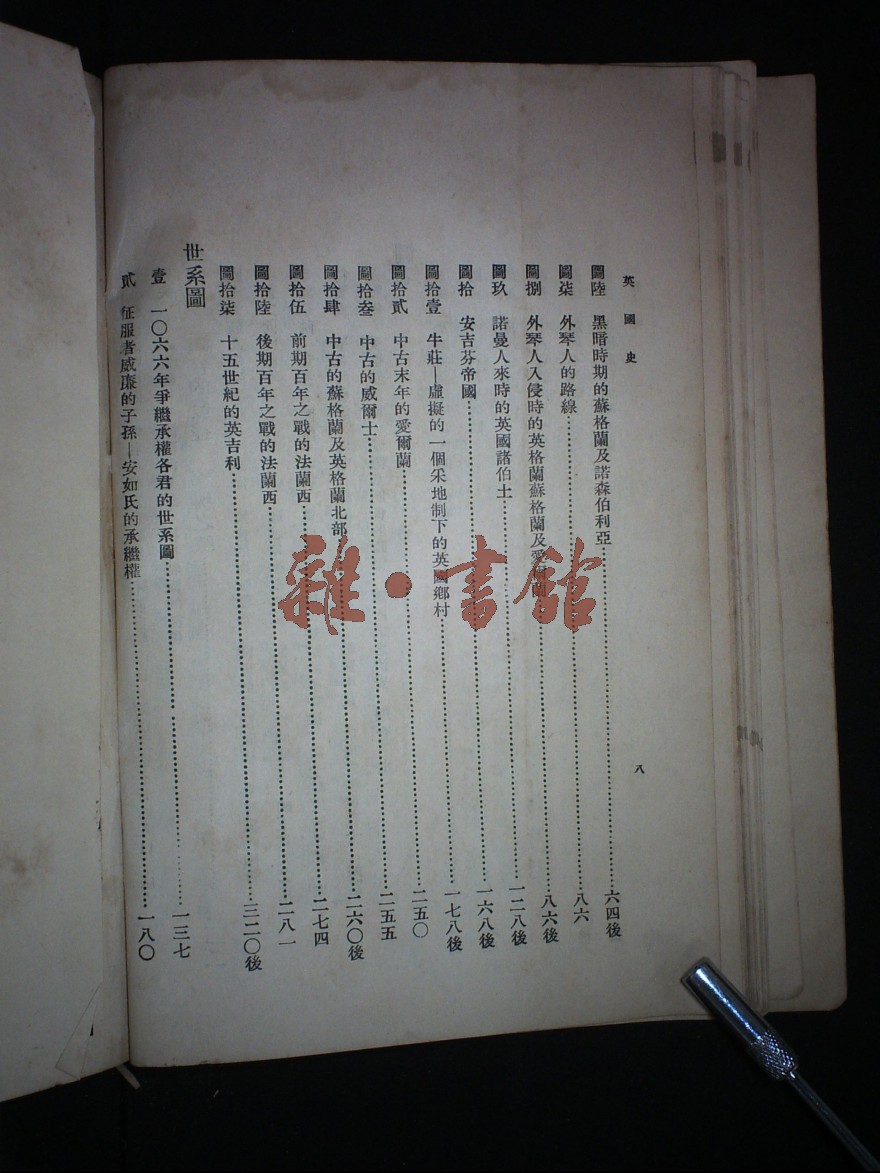 英國史
八
圖陸 黑暗時期的蘇格蘭及諾森伯利亞……六四後
圖柒 外琴人的路線……八六
圖捌 外琴人入侵時的英格蘭蘇格蘭及愛爾蘭……八六後
圖玖 諾曼人來時的英國諸伯土……一二八後
圖拾 安吉芬帝國……一六八後
圖拾壹 牛莊—虛擬的一個采地制下的英國鄉村……一七八後
圖拾貳 中古末年的愛爾蘭……二五〇
圖拾叁 中古的威爾士……二五五
圖拾肆 中古的蘇格蘭及英格蘭北部……二六〇後
圖拾伍 前期百年之戰的法蘭西……二七四
圖拾陸 後期百年之戰的法蘭西……二八一
圖拾柒 十五世紀的英吉利……三二〇後
世系圖
壹 一〇六六年爭繼承權各君的世系圖……一三七
貳 征服者威廉的子孫—安如氏的承繼權……一八〇
雜·書館